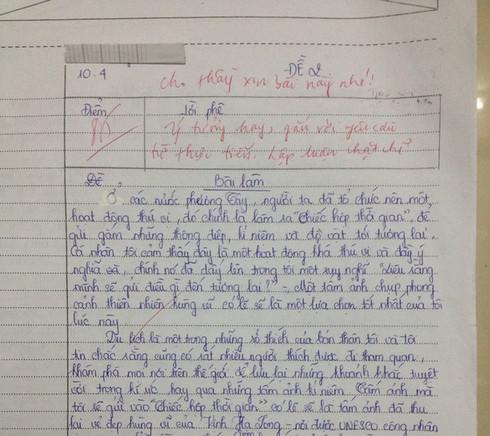 10.4
ĐỀ 2
cho thầy xin bài này nhé!
Điểm
Lời phê
Ý tưởng hay, gắn với yêu cầu
từ thực tiễn. Lập luận chặt chẽ
Đề 2
Bài làm
Ở các nước phương Tây, người ta đã tổ chức nên một
hoạt động thú vị, đó chính là làm ra "Chiếc hộp thời gian", để
gửi gắm những thông điệp, kỉ niệm và đồ vật tới tương lai.
Cá nhân tôi cảm thấy đây là một hoạt động khá thú vị và đầy ý
nghĩa và, chính nó đã dấy lên trong tôi một suy nghĩ "Liệu rằng
mình sẽ gửi điều gì đến tương lai?" - Một tấm ảnh chụp phong
cảnh thiên nhiên hùng vĩ có lẽ sẽ là một lựa chọn tốt nhất của tôi
lúc này.
Du lịch là một trong những sở thích của bản thân tôi và tôi
tin chắc rằng cũng có rất nhiều người thích được đi tham quan,
khám phá mọi nơi trên thế giới, để lưu lại những khoảnh khắc tuyệt
vời trong kí ức hay qua những tấm ảnh kỉ niệm. Tấm ảnh mà
tôi sẽ gửi vào "Chiếc hộp thời gian" có lẽ sẽ là tấm ảnh đã thu
lại vẻ đẹp hùng vĩ của Vịnh Hạ Long - nơi được UNESCO công nhận